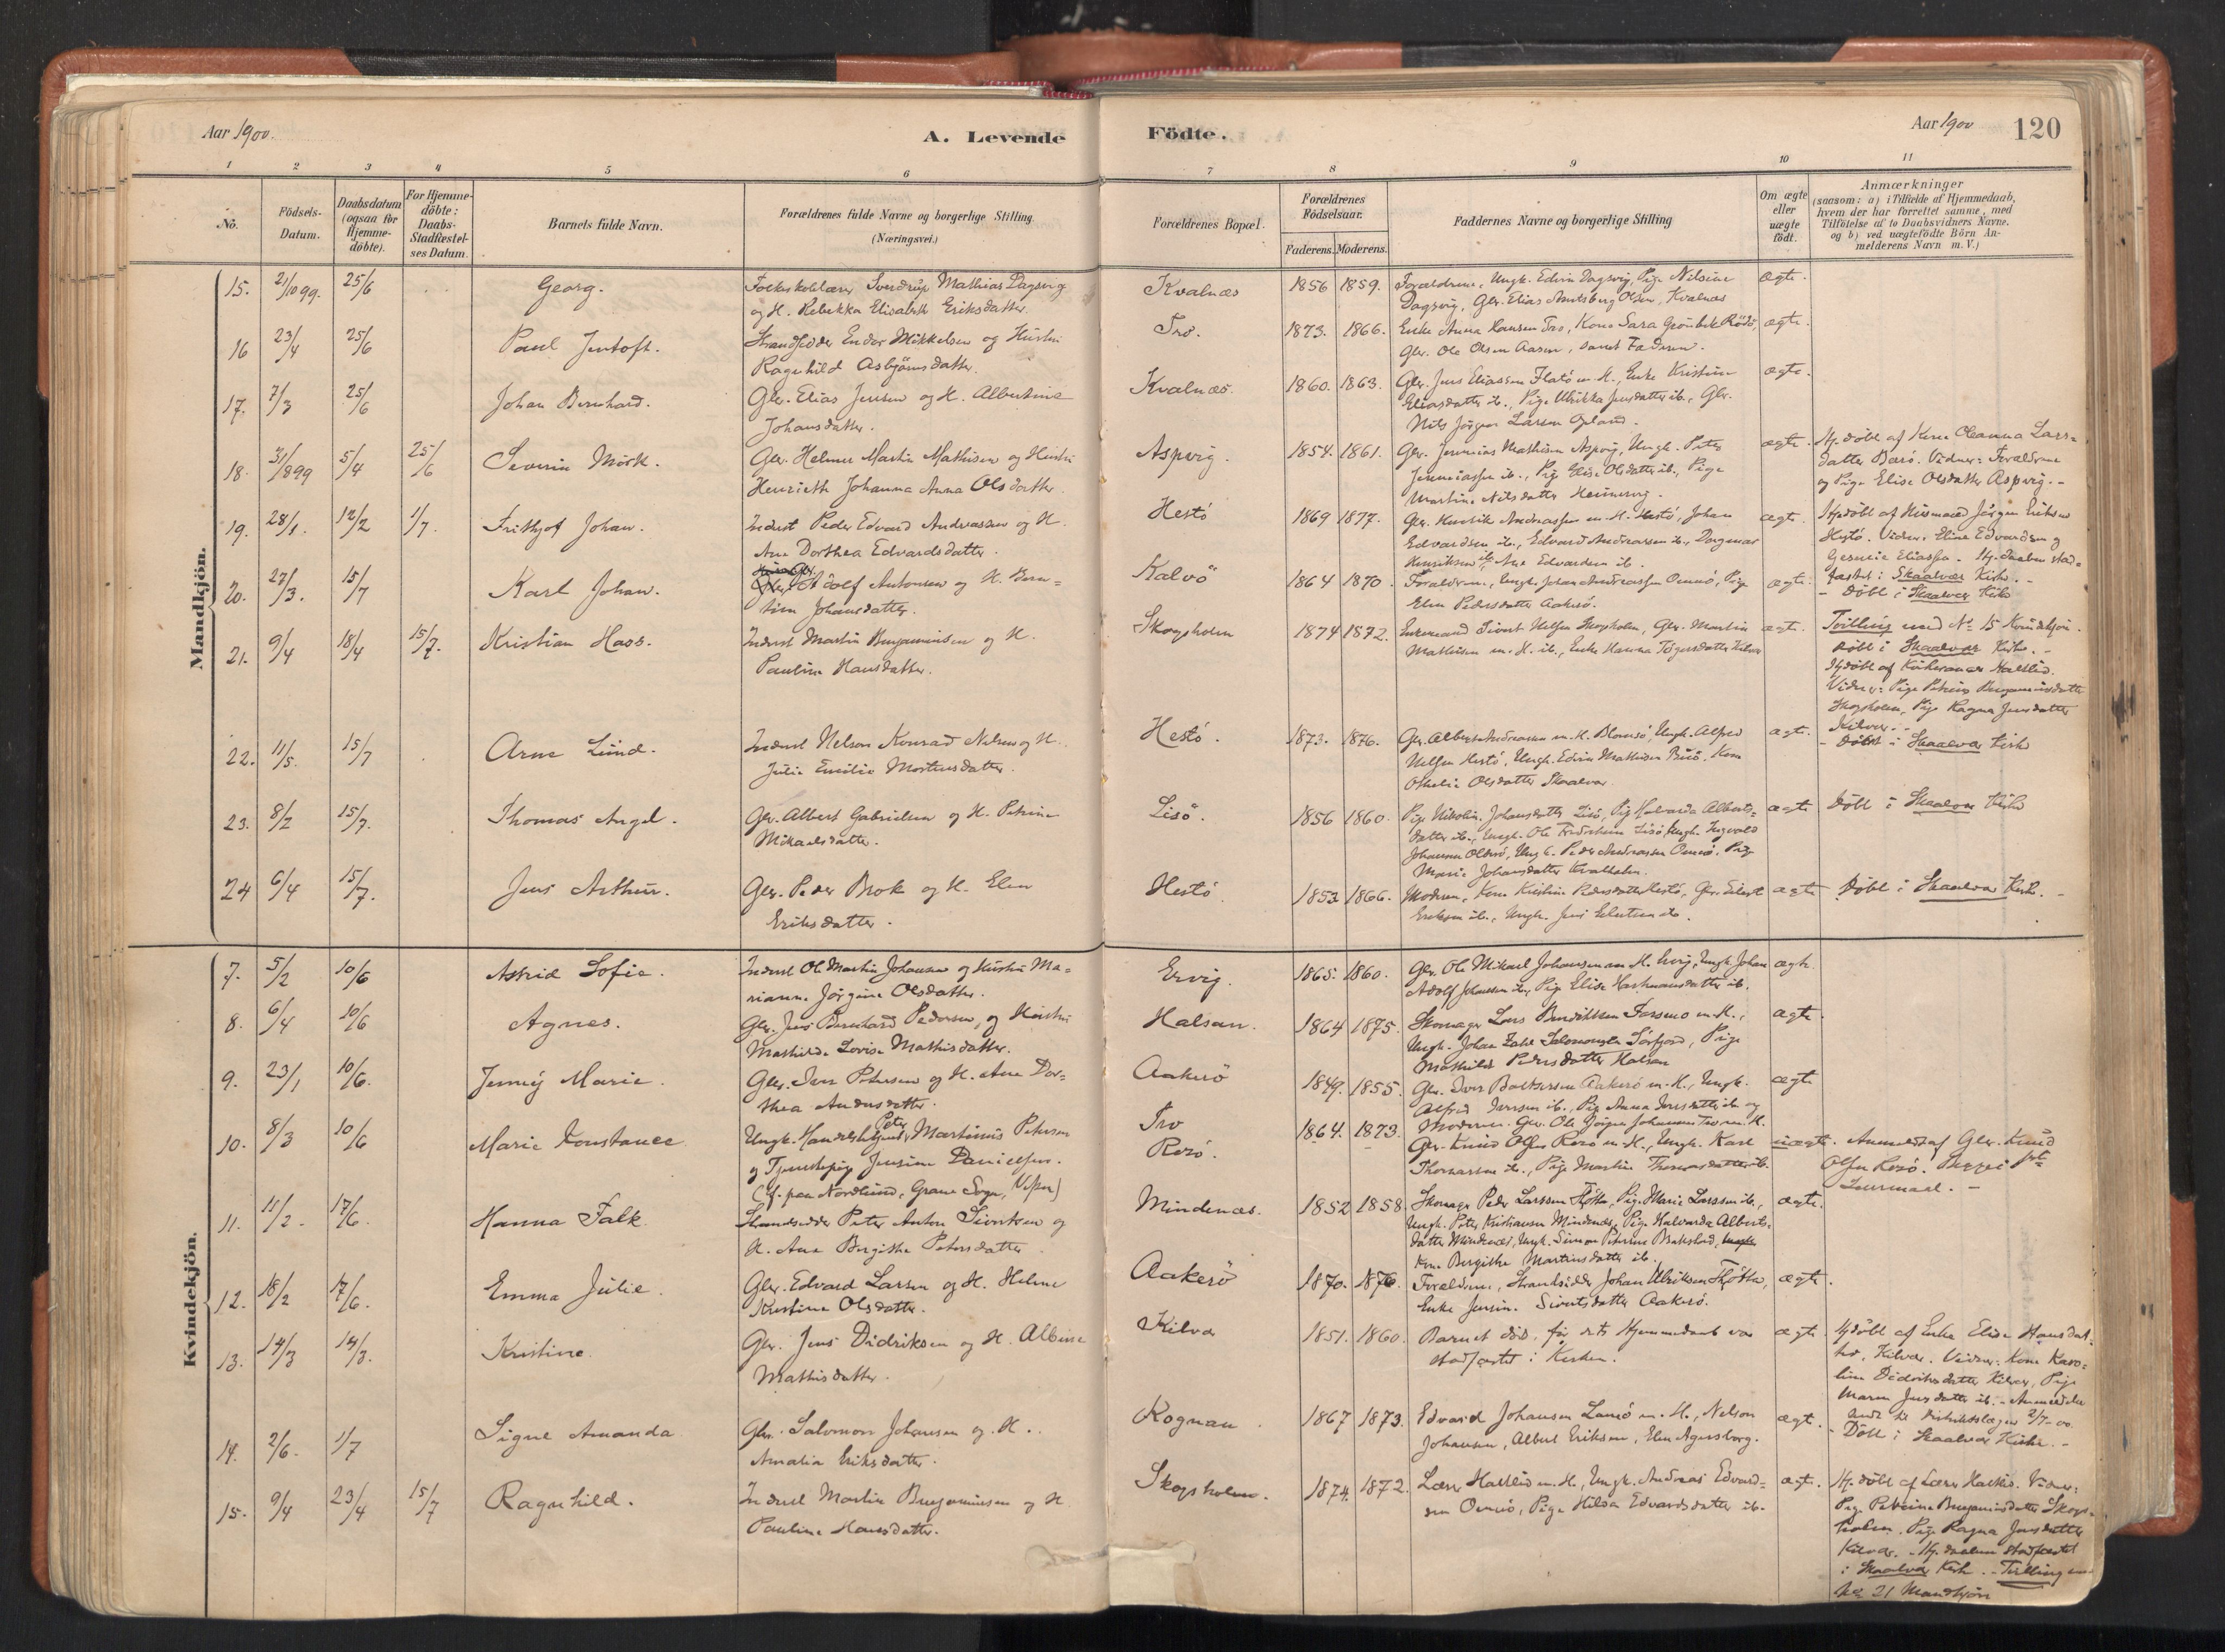 Aar 1900.
A. Levende
Födte.
Aar 1900
120
1 2 3 4 5 6 7 8 9 10 11
No.
Födsels-
Datum.
Daabsdatum
(ogsaa for
Hjemme-
döbte).
For Hjemme-
döbte:
Daabs-
Stadfæstel-
ses Datum.
Barnets fulde Navn.
Forældrenes fulde Navne og borgerlige Stilling
(Næringsvei.)
Forældrenes Bopæl.
Forældrenes
Födselsaar.
Faderens. Moderens.
Faddernes Navne og borgerlige Stilling
Om ægte
eller
uægte
födt.
Anmærkninger
(saasom: a) i Tilfælde af Hjemmedaab,
hvem der har forrettet samme, med
Tilföielse af to Daabsvidners Navne.
og b) ved uægtefödte Börn An-
melderens Navn m. V.)
Mandkjön.
15. 21/10 99. 25/6 Georg.
Folkeskolelærer Sverdrup Mathias Dagsvig
og H. Rebekka Elisabeth Eriksdatter.
Kvalnæs 1856 1859.
Forældrene, Ungk. Edvin Dagsvig, Pige Nilsine
Dagsvig, Gbr. Elias Olsen, Kvalnæs
ægte.
16 23/4 25/6 Paul Jentoft.
Strandsidder Endor Mikkelsen og Hustru
Ragnhild Asbjörnsdatter.
Tro. 1873. 1866.
Enke Anna Hansen Tro, Kone Sara Rödö,
Gbr. Ole Olsen Aasen, samt Faderen.
ægte.
17. 7/3 25/6 Johan Bernhard.
Gbr. Elias Jensen og H. Albertine
Johansdatter.
Kvalnæs. 1860. 1863.
Gbr. Jens Eliassen Flatö m. H., Enke Kristine
Eliasdatter ib., Pige Ulrikka Jensdatter ib., Gbr.
Nils Jörgen Larsen Opland.
ægte.
18. 31/8 99 5/4 25/6 Severin Mörk.
Gbr. Helmer Martin Mathisen og Hustru
Henriette Johanna Anna Olsdatter.
Aspvig. 1854. 1861.
Gbr. Jeremias Mathisen Aspvig, Ungk. Peter
Jeremiassen ib., Pig Elise Olsdatter ib., Pige
Martine Nilsdatter
ægte.
Hj. döbt af Kone Oleanna Lars-
datter Barö. Vidner: Forældrene
og Pige Elise Olsdatter Aspvig. -
19. 28/1. 12/2 1/7. Frithjof Johan.
Inderst Peder Edvard Andreassen og H.
Ane Dorthea Edvardsdatter.
Hestö 1869 1877.
Gbr. Henrik Andreassen m. H. Hestö, Johan
Edvardsen ib., Edvard Andreassen ib., Dagmar
Henriksen ib., Ane Edvardsen ib.
ægte.
Hj. döbt af Husmand Jörgen Eriksen
Hestö. Vidner: Eline Edvardsen og
Eliassen. Hj. daaben stad-
fæstet i Skaalvær Kirke. -
20. 27/3. 15/7 Karl Johan.
Adolf Antonsen og H. Bern-
tine Johansdatter.
Kalvö 1864 1870
Forældrene, Ungk. Johan Andreassen Ommö, Pige
Elen Pedersdatter Aakerö.
ægte.
- Döbt i Skaalvær Kirke
21. 9/4 18/4 15/7. Kristian Haas.
Inderst Martin Benjaminsen og H.
Pauline Hansdatter.
Skogsholm 1874 1872.
Enkemand Sivert Nilsen Skogsholm, Gbr. Martin
Mathisen m. H. ib., Enke Hanna Kilvær
ægte.
Tvilling med No 15 Kvindekjön.
Döbt i Skaalvær Kirke. -
Hj. döbt af Kirkesanger Hatleid.
Vidner: Pige Petrine Benjaminsdatter
Skogsholm, Pige Ragna Jensdatter
Kilvær. -
22. 11/5. 15/7 Arne Lund.
Inderst Nelson Konrad Nilsen og H.
Julie Emilie Mortensdatter.
Hestö. 1873. 1876.
Gbr. Albert Andreassen m. H. Blomsö, Ungk. Alfred
Nilsen Hestö, Ungk. Edvin Mathisen Buö, Kone
Othelie Olsdatter Skaalvær.
ægte.
- Döbt i Skaalvær Kirke
23. 8/2 15/7. Thomas Angel.
Gbr. Albert Gabrielsen og H. Petrine
Mikaelsdatter.
Lisö. 1856 1860.
Pige Nikoline Johansdatter Lisö, Pig Halvarda Alberts-
datter ib., Ungk. Ole Fredriksen Lisö, Ungk. Ingvald
Johansen Olderö, Ungk. Peder Andreassen Ommö, Pige
Marie Johansdatter Kvalholm.
ægte
Döbt i Skaalvær Kirke
24 6/4 15/7. Jens Arthur.
Gbr. Peder Brok og H. Elen
Eriksdatter.
Hestö. 1853 1866.
Moderen, Kone Kristine Pedersdatter Hestö, Gbr. Edvart
Eriksen ib., Ungk. Jens ib.
ægte
Döbt i Skaalvær Kirke. -
Kvindekjön.
7. 5/2 10/6 Astrid Sofie.
Inderst Ole Martin Johansen og Hustru Ma-
rianne Jörgine Olsdatter.
Ervig. 1865. 1860.
Gbr. Ole Mikael Johansen m. H. Ervig, Ungk. Johan
Adolf Johansen ib., Pige Elise Hartmansdatter ib.
ægte.
8. 6/4 10/6 Agnes.
Gbr. Jens Bernhard Pedersen, og Hustru
Mathilde Lovise Mathisdatter.
Halsan. 1864 1875.
Skomager Lars Bendiktsen Forsmo m. H.,
Ungk. Johan Zahl Salomonsen Sörfjord, Pige
Mathilde Pedersdatter Halsan
ægte.
9. 23/1 10/6. Jenny Marie.
Gbr. Iver Petersen og H. Ane Dor-
thea Andersdatter.
Aakerö 1849. 1855.
Gbr. Iver Baltsersen Aakerö m. H., Ungk.
Alfred Iversen ib., Pig Anna Iversdatter ib. og
Moderen. Gbr. Ole Jörgen Johannesen Tro m. H.
ægte
10. 8/3 10/6 Marie Konstance
Ungk. Handelsbetjent Peter Martinus Petersen
og Tjenestepige Jensine Danielsen.
(F. paa Nordlund, Grane Sogn, Vefsen)
Tro
Rozö. 1864. 1873.
Gbr. Knud Olsen Rozö m. H., Ungk. Karl
Thomassen ib., Pige Martine Thomasdatter ib.
uægte.
Anmeldt af Gbr. Knud
Olsen Rozö. Begges 1ste
Leiermaal. -
11. 11/2. 17/6. Hanna Falk.
Strandsidder Peter Anton Sivertsen og
H. Ane Bergithe Petersdatter
Mindenæs. 1852 1858.
Skomager Peder Larssen Tjötta, Pige Marie Larssen ib.,
Ungk. Peter Kristiansen Mindenæs, Pige Halvarda Alberts-
datter Mindenæs, Ungk. Simon Petersen Brækstad,
Kone Bergithe Martinsdatter ib.
ægte.
12. 18/2 17/6. Emma Julie.
Gbr. Edvard Larsen og H. Helene
Kristine Olsdatter.
Aakerö 1870. 1876.
Forældrene, Strandsidder Johan Ulriksen Tjötta,
Enke Jensine Sivertsdatter Aakerö.
ægte.
13. 14/3 14/3. Kristine.
Gbr. Jens Didriksen og H. Albine
Mathisdatter.
Kilvær 1851. 1860.
Barnet död, för dets Hjemmedaab var
stadfæstet i Kirken.
ægte
Hj. döbt af Enke Elise Hansdat-
ter, Kilvær. Vidner: Kone Karo-
line Didriksdatter Kilvær, Pige
Maren Jensdatter ib. - Anmeldelse
sendt til Distriktslægen 2/7-00
14. 2/6. 1/7 Signe Amanda
Gbr. Salomon Johansen og H.
Amalia Eriksdatter.
Rognan. 1867 1873.
Edvard Johansen Lamö m. H., Nelson
Johansen, Albert Eriksen, Elen Agersborg.
ægt.
- Döbt i Skaalvær Kirke. -
15. 9/4 23/4 15/7 Ragnhild.
Inderst Martin Benjaminsen og H
Pauline Hansdatter.
Skogsholm. 1874. 1872.
Lærer Hatleid m. H., Ungk. Andreas Edvard-
sen Ommö, Pige Hilda Edvardsdatter ib.
ægt.
Hj. döbt af Lærer Hatleid. Vidner:
Pige Petrine Benjaminsdatter Skogs-
holm. Pige Ragna Jensdatter
Kilvær. - Hj. daaben stadfæstet
i Skaalvær Kirke. - Tvilling med
No 21 Mandkjön